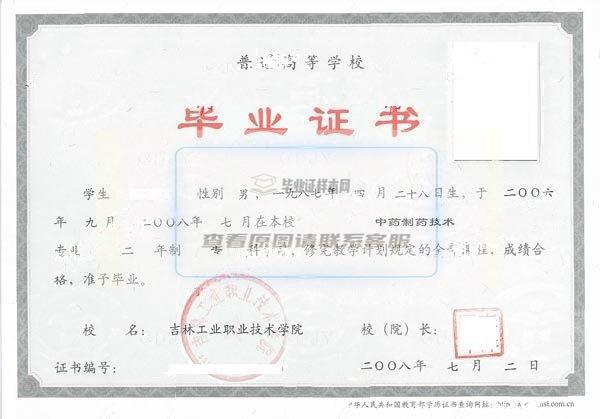 普通高等学校
毕业证书
毕业证样本网
学生 性别 男，一九八七年 四 月 二十八日生，于 二〇〇六
年 九 月 二〇〇八年 七 月在本校 中药制药技术
查看原图请联系客服
专业 二 年制 专 科 修完教学计划规定的全部课程，成绩合
格，准予毕业。
校 名： 吉林工业职业技术学院 校（院）长：
吉林工业职业技术学院
证书编号： 二〇〇八年 七 月 二 日
中华人民共和国教育部学历证书查询网址：